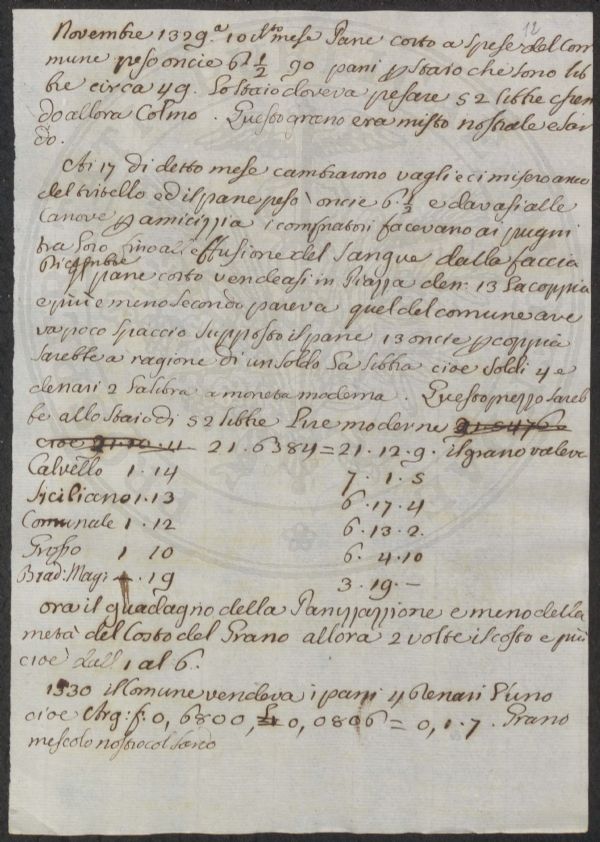 12
Novembre 1329. a 10 d.to mese Pane cotto a spese del Com
mune peso oncie 6 1/2 90 pani p staio che sono lib
bre circa 49. Lo staio doveva pesare 52 libbre essen
do allora Colmo. Questo grano era misto nostrale e sar
do.
Ai 17 di detto mese cambiarono vagli e ci misero anco
del tritello ed il pane peso oncie 6. 1/2 e davasi alle
Canove p amicizzia i compratori facevano ai pugni
tra loro fino all'effusione del Sangue dalla faccia
Dicembre
Il pane cotto vendeasi in Piazza den: 13 la coppia
e più e meno secondo pareva quel del comune ave
va poco spaccio supposto il pane 13 oncie p coppia
sarebbe a ragione di un soldo la libbra cioè soldi 4 e
denari 2 la libra a moneta moderna. Questo prezzo sareb
be allo staio di 52 libbre Lire moderne 21.5476
cioè 21.10.11 21.6384=21.12.9. il grano valeva
Calvello 1.14 7.1.5
Siciliano 1.13 6.17.4
Comunale 1.12 6.13.2.
Grosso 1 10 6.4.10
Biad: Mag: — .19 3.19.—
ora il guadagno della Panizzazzione e meno della
metà del Costo del Grano allora 2 volte il costo e più
cioè dall 1 al 6.
1330 il Comune vendeva i pani 4 denari l'uno
cioè Arg: f. 0,6800, 0,0806 = 0,1.7. Grano
mescolo nostro col sardo